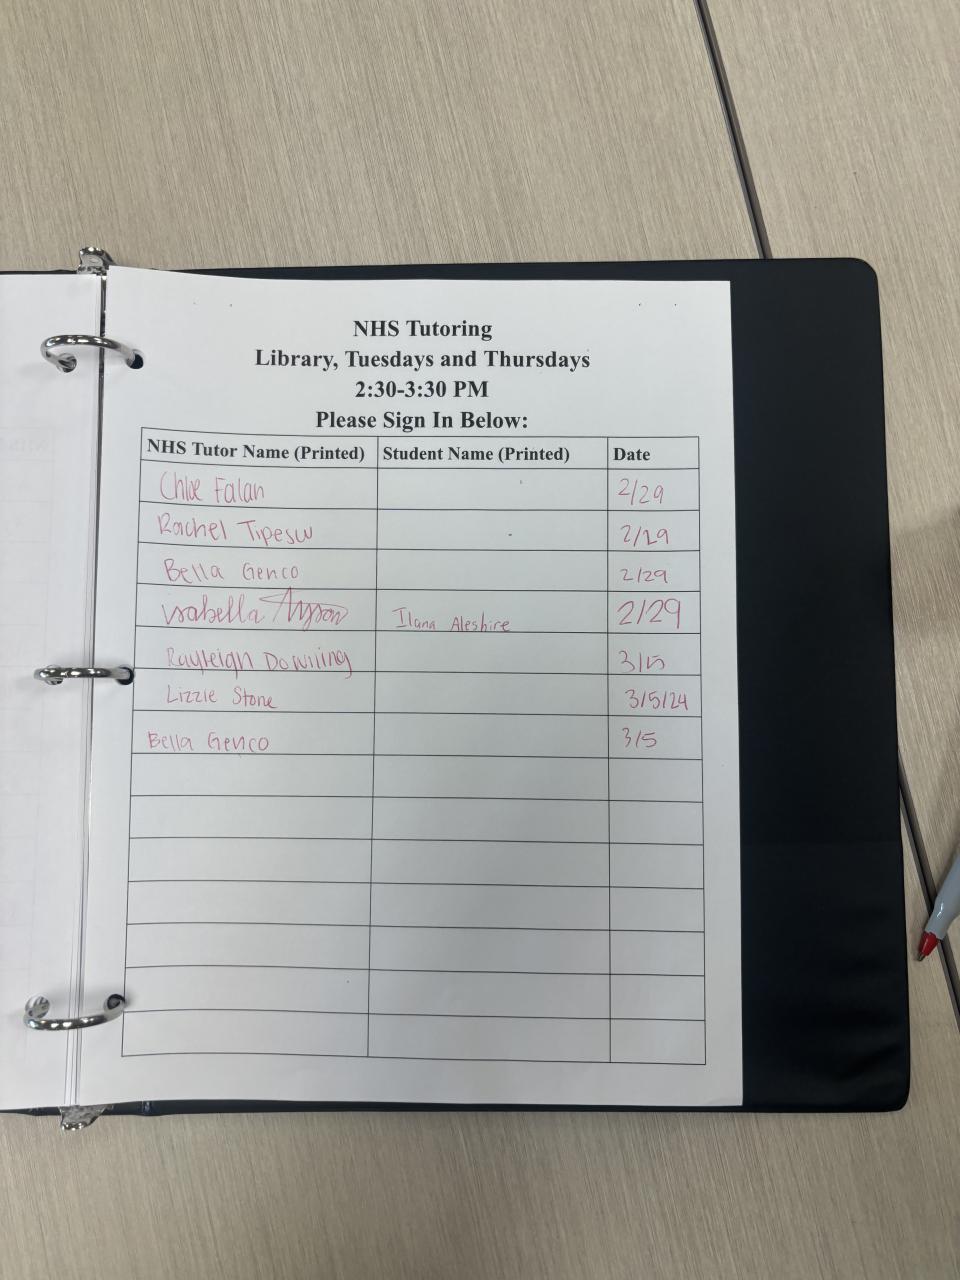 NHS Tutoring
Library, Tuesdays and Thursdays
2:30-3:30 PM
Please Sign In Below:
NHS Tutor Name (Printed) Student Name (Printed) Date
Chloe Falan 2/29
Rachel 2/29
Bella Genco 2/29
Isabella Ilana Aleshire 2/29
Rayleigh Downing 3/5
Lizzie Stone 3/5/24
Bella Genco 3/5